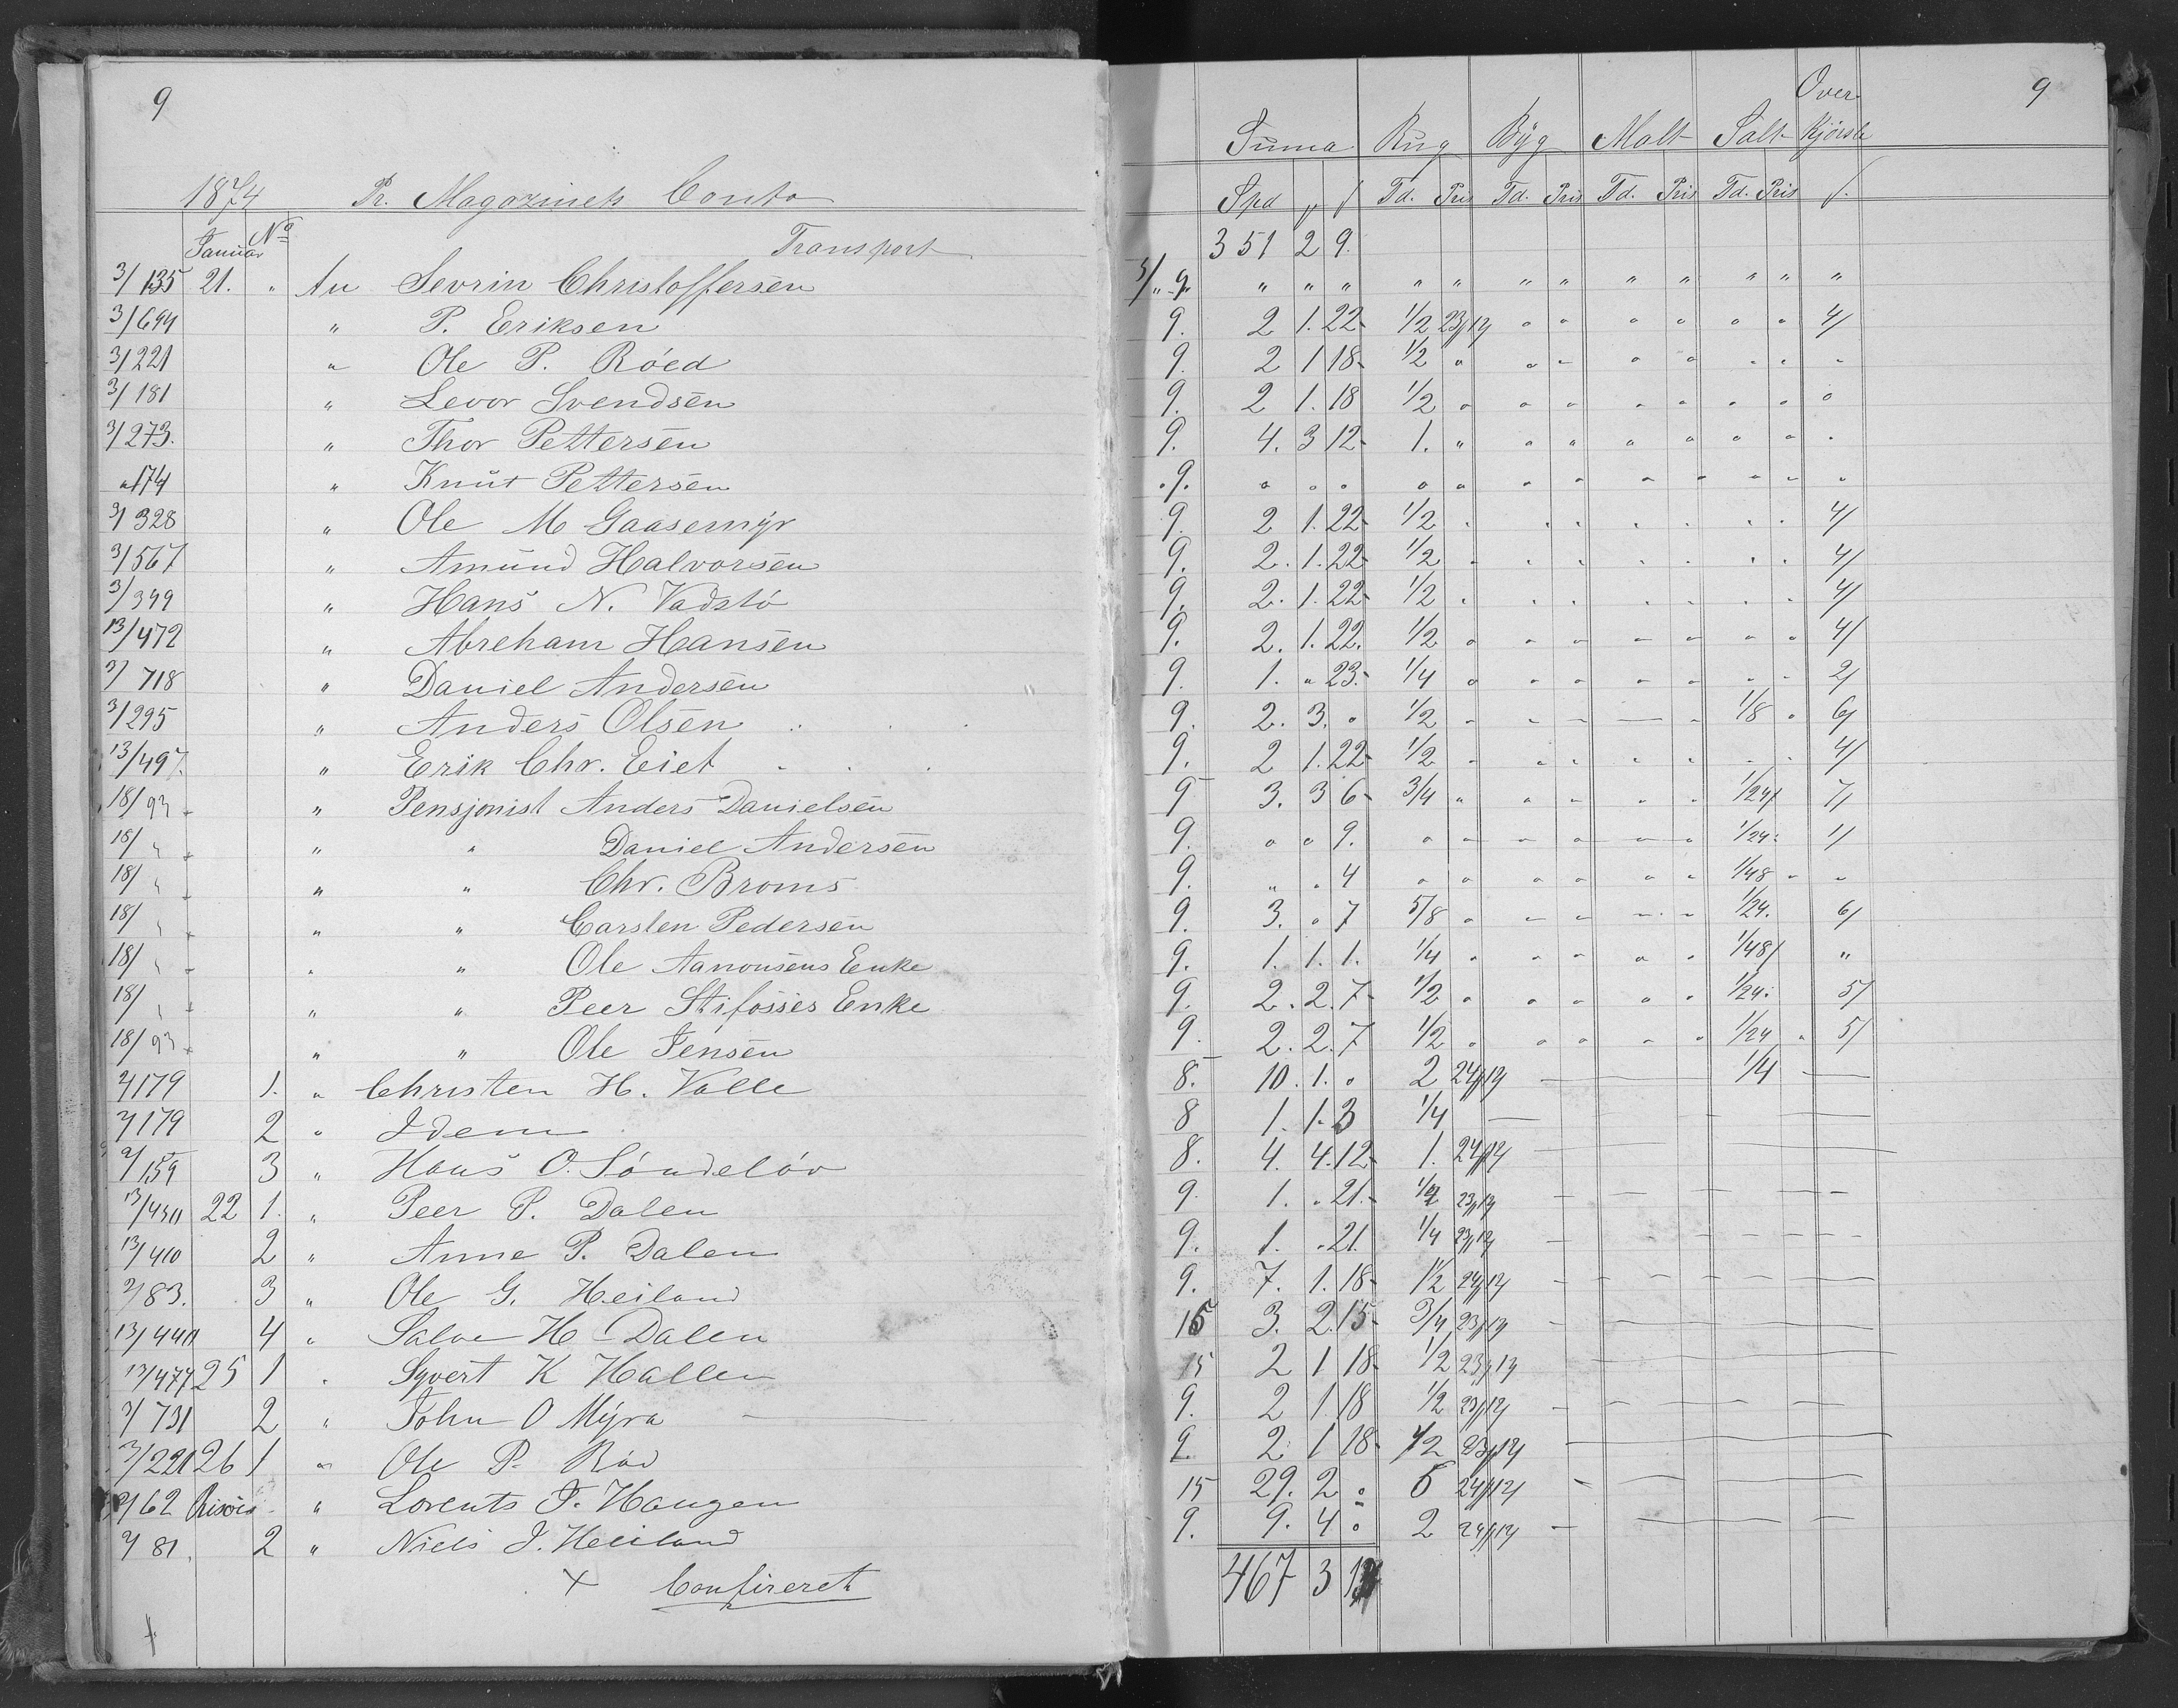 9
1874 Pr. Magazinets Conto
Januar No
Transport
3/135 21. " An Sevrin Christoffersen
3/694 " P. Eriksen
3/221 " Ole P. Röed
3/181 " Levor Svendsen
3/273. " Thor Pettersen
"174 " Knut Pettersen
3/328 " Ole M Gaasemyr
3/567 " Amund Halvorsen
3/349 " Hans N. Vadstö
13/472 " Abreham Hansen
3/718 " Daniel Andersen
3/295 " Anders Olsen
13/497. " Erik Chr. Eiet
18/93 " Pensjonist Anders Danielsen
18/ " " " Daniel Andersen
18/ " " " Chr. Broms
18/ " " " Carsten Pedersen
18/ " " " Ole Aanonsens Enke
18/ " " " Peer Stifosses Enke
18/93 " " Ole Jensen
2/179 1. " Christen H. Valle
2/179 2 " Idem
2/159 3 " Hans O. Söndelöv
13/450 22 1. " Peer P. Dalen
13/410 2 " Anne P. Dalen
2/83. 3 " Ole G. Heiland
13/440 4 " Salve H Dalen
13/477 25 1 " Syvert K Hallen
3/731 2 " John O Myra
3/221 26 1 " Ole P. Röd
2/62 Risöer " Lorents J. Haugen
2/81. 2 " Niels J. Heiland
+ Confireret
9
Over
Suma Rug Byg Malt Salt Kjørsle
Spd Td. Pris Td. Pris Td. Pris Td. Pris
351 2 9.
3/ " 9. " " " " " " " " " " " "
9. 2 1. 22 1/2 23/12 " " " " " " 4/
9. 2 1 18 1/2 " " " " " " " "
9. 2 1. 18 1/2 " " " " " " " "
9. 4. 3 12 1. " " " " " " " "
"9. " " " " " " " " " " " "
9. 2 1. 22 1/2 " " " " " " " 4/
9. 2. 1. 22 1/2 " " " " " " " 4/
9. 2. 1. 22 1/2 " " " " " " " 4/
9. 2. 1. 22. 1/2 " " " " " " " 4/
9. 1. " 23. 1/4 " " " " " " " 2/
9. 2. 3. " 1/2 " " " " " 1/8 " 6/
9. 2 1. 22 1/2 " " " " " " " 4/
9 3. 3 6 3/4 " " " " " 1/24 7/
9. " " 9. " " " " " " 1/24 1/
9. " " 4 " " " " " " 1/48 " "
9. 3. " 7 5/8 " " " " " 1/24. 6/
9. 1. 1. 1. 1/4 " " " " " 1/48 "
9. 2. 2. 7 1/2 " " " " " 1/24 5/
9. 2. 2. 7 1/2 " " " " " 1/24 " 5/
8. 10. 1. " 2 24/12 — 1/4 —
8 1. 1. 3 1/4 —
8. 4. 4. 12 1. 24/12 —
9. 1. " 21. 1/4 23/12 —
9. 1. " 21. 1/4 23/12 —
9. 7. 1. 18 1½ 24/12 —
15 3. 2. 15 3/4 23/12 —
15 2 1 18 1/2 23/12 —
9. 2 1 18 1/2 23/12 —
9. 2 1 18 1/2 23/12 —
15 29. 2 " 6 24/12 —
9. 9. 4 " 2 24/12 —
467 3